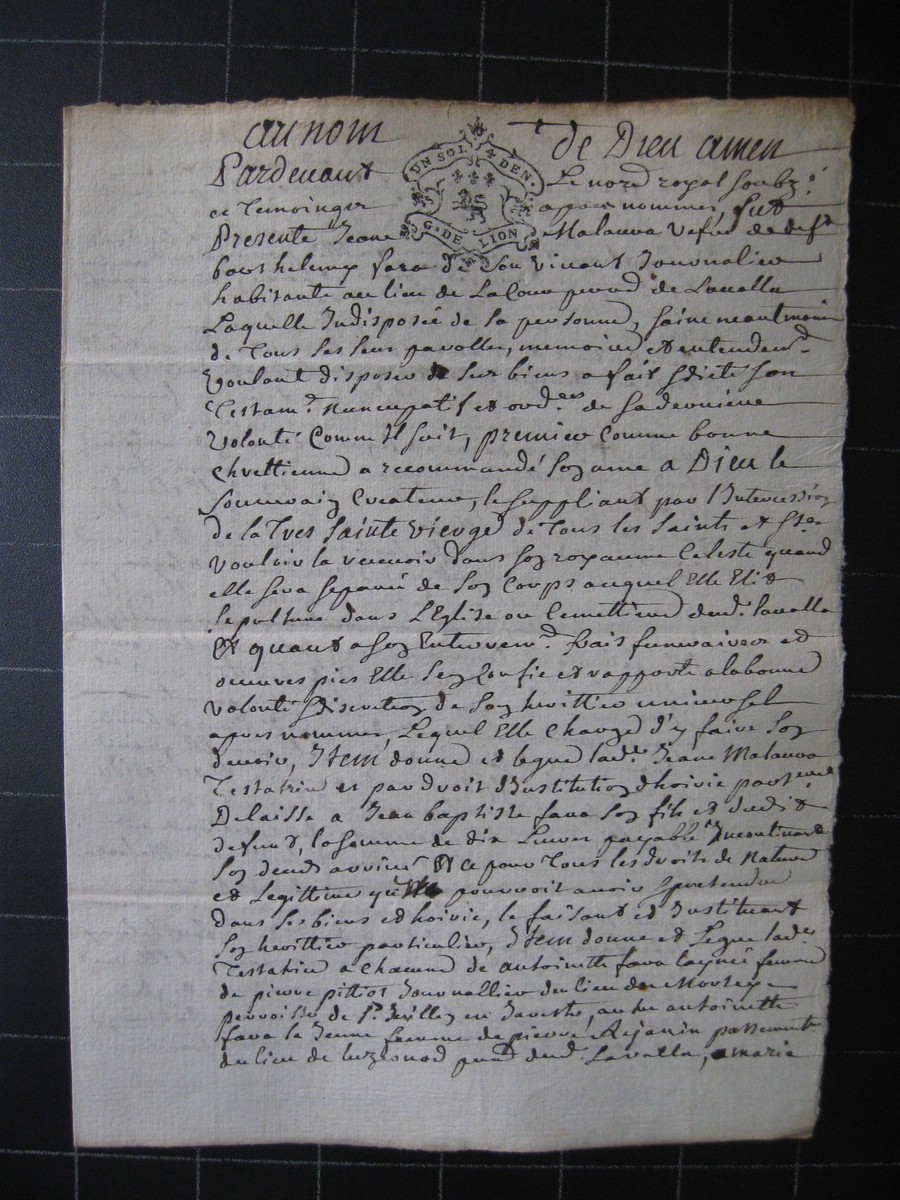 au nom de Dieu amen
UN SOL 4 DEN.
G. DE LION
Pardevant Le no.re royal soubz.é
et Temoings apres nommes, fut
Presente Jeane Malauva vefve de deft
barthelemy fara de son vivant Journalier
habitante au lieu de Lacour parrd de Lavalla
Laquelle Indisposée de sa personne, saine neantmoins
de Tous ses sens parolle, memoire et entendemt
voulant disposer de ses biens a fait & dicté son
Testamt nuncupatif et ordre de sa derniere
volonté Comme Il suit, premier Comme bonne
Chrettienne a recommandé son ame a DIEU le
Souverain Createur, le suppliant par l'Intercession
de la Tres Sainte vierge de Tous les Saints et Stes
vouloir la recevoir dans son royaume Celeste quand
elle sera separée de son Corps auquel Elle Elit
sepulture dans l'Eglise ou Cemettiere dud. Lavalla
Et quant a son Enterremt frais funeraires et
oeuvres pies Elle s'en Confie et rapporte a la bonne
volonté & discretion de son herittier universel
apres nommer, Lequel Elle Charge d'y faire son
devoir, Item donne et legue lade Jeane Malauva
Testatrice et par droit d'Institution & hoirie
Delaisse a Jean baptiste fara son fils et dudit
defunt, la somme de dix Livres payable Incontinant
son deceds arrivé Et ce pour Tous les droits de Nature
et Legittime qu'Il pourroit avoir & pretendre
dans ses biens et hoirie, le faisant et Instituant
son herittier particulier, Item donne et Legue lade
Testatrice a Chacune de antoinette fara laynée femme
de pierre pittiot Journallier du lieu de
parroisse de St. en Jarest, autre antoinette
fara la Jeune femme de pierre Rejanin passementr
du lieu de luzernod parrd dud. Lavalla, a marie